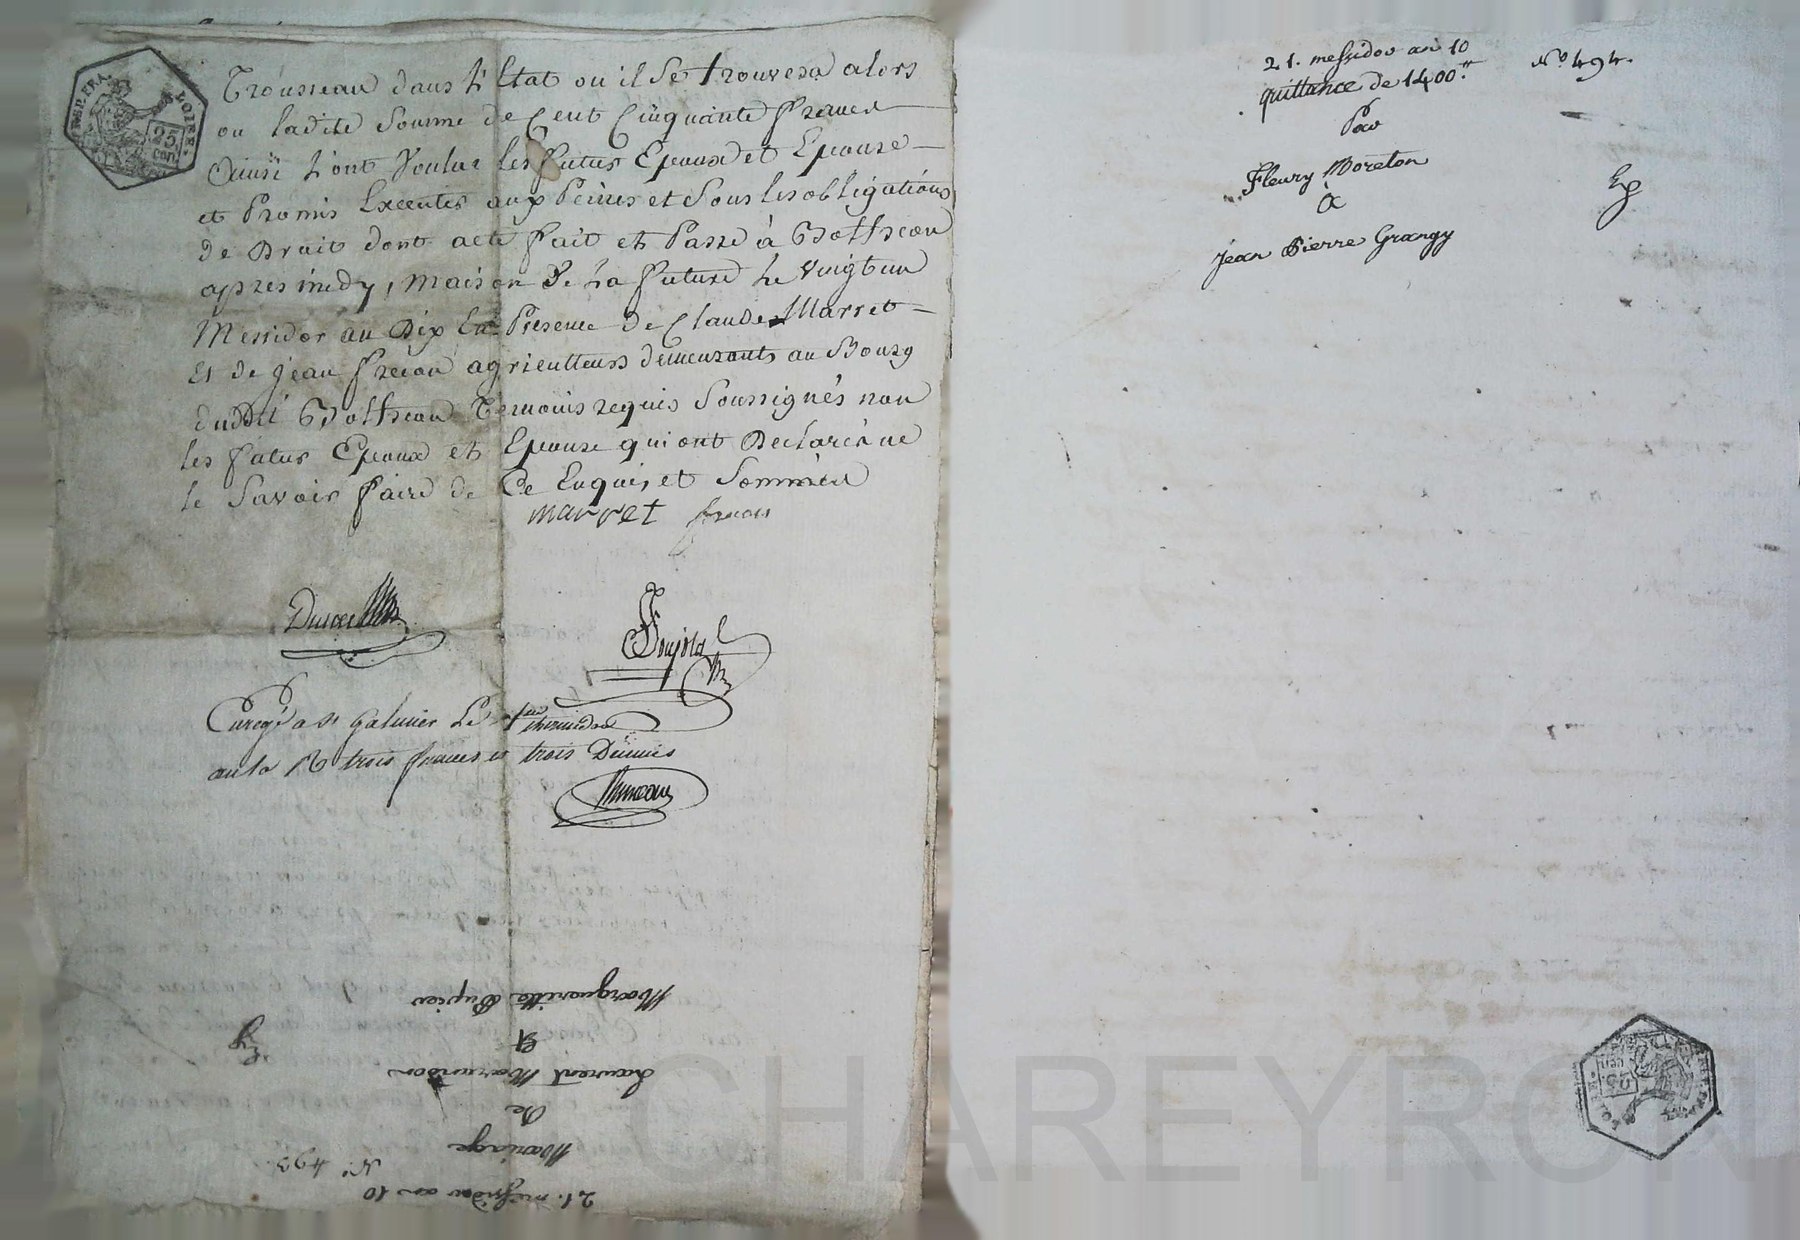 REP. FRA.
LOIRE.
25
CEN
Trousseau dans L'Etat ou il Se trouvera alors
ou ladite Somme de Cent Cinquante francs
Ainsi L'ont Voulu les futurs Epoux et Epouse
et Promis Executer aux Peines et Sous les obligations
de Droit dont acte fait et Passé à Botheon
apres midy, maison de La future Le Vingt un
Messidor an Dix En Presence de Claude Marret
Et de jean frecon agriculteurs demeurants au Bourg
dudit Botheon Temoins requis Soussignés non
les futurs Epoux et Epouse qui ont Declarés ne
le Savoir faire de Ce Enquis et Sommés
marret frecon
Enregé a St Galmier Le 1er thermidor
an 10 R trois francs et trois Décimes
21. messidor an 10
No. 493.
Mariage
De
Laurent
Et
Margueritte Dupier
21. messidor an 10
No. 494.
quittance de 1400.tt
Par
Fleury Moreton
à
Jean Pierre Grangy
Ep
25
CHAREYRON